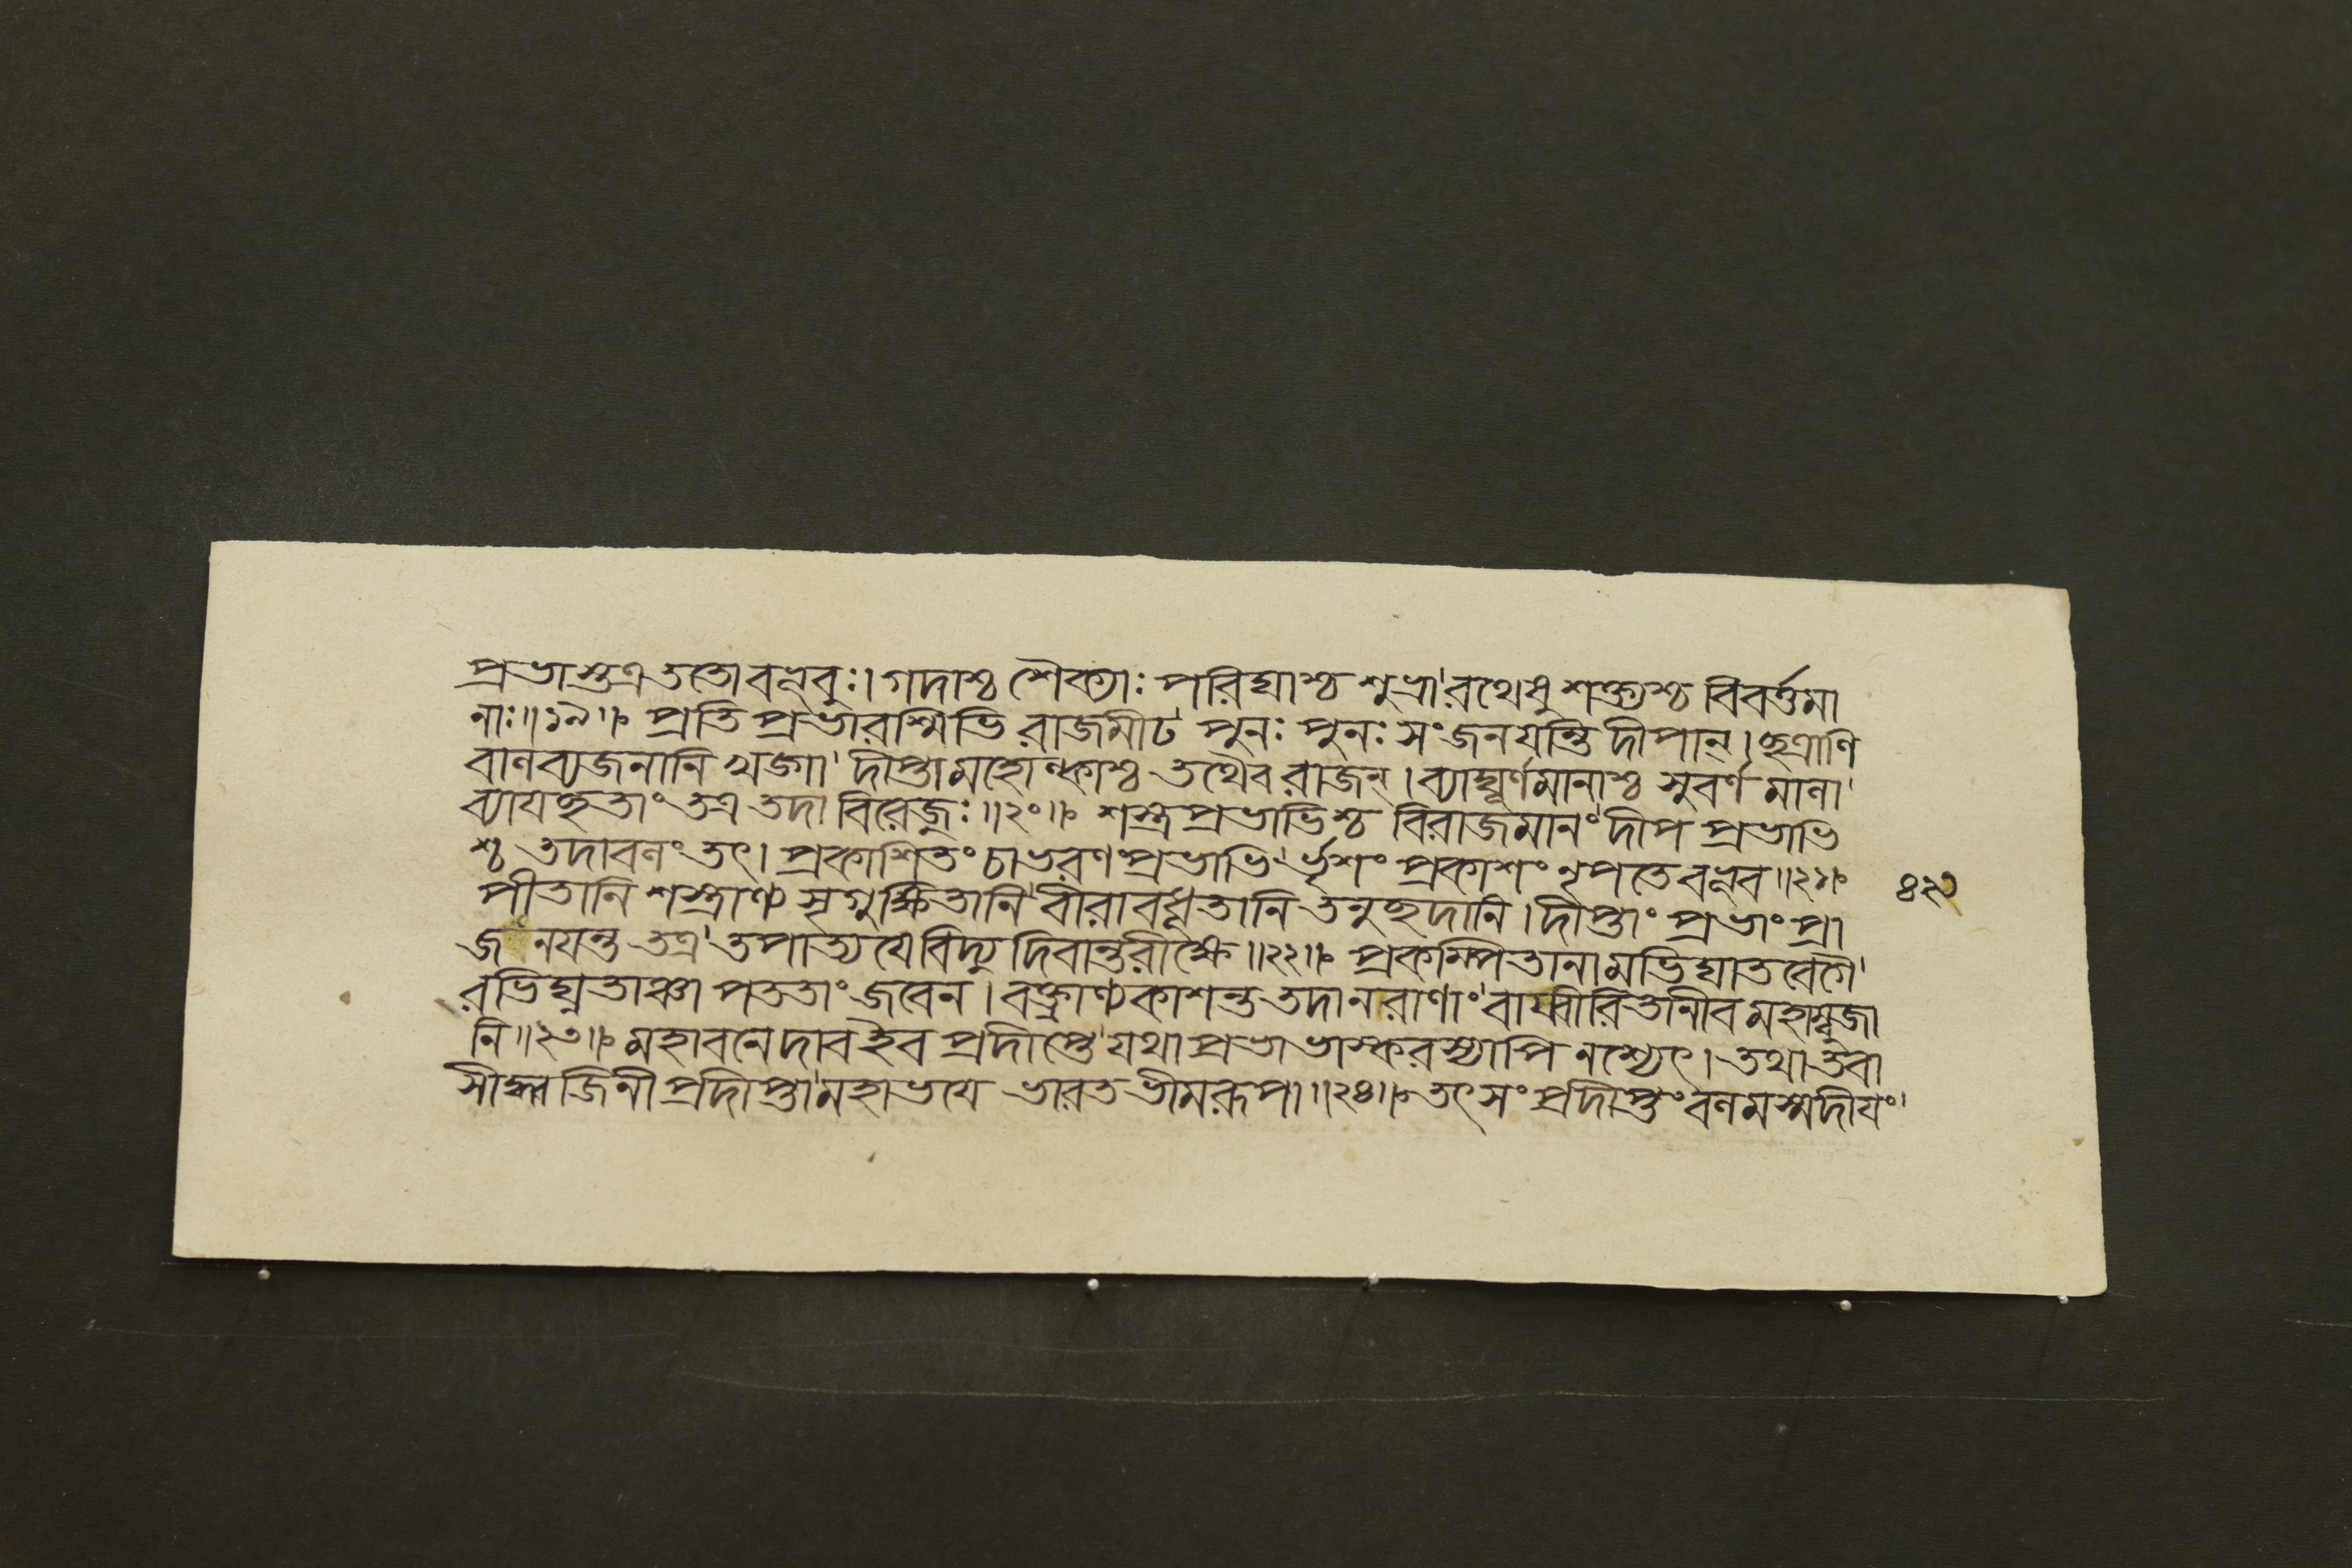 প্রভাস্তত্র ততো বভূবুঃ। গদাশ্চ শৈক্যাঃ পরিঘাশ্চ শুভ্রা রথেষু শক্ত্যশ্চ বিবর্ত্তমা
নাঃ॥১৯॥ প্রতি প্রভারশ্মিভি রাজমীঢ পুনঃ পুনঃ সংজনযন্তি দীপান্। ছত্রাণি
বাণব্যজনানি খড্গা দীপ্তা মহোল্কাশ্চ তথৈব রাজন্। ব্যাঘূর্ণমানাশ্চ সুবর্ণ মানা
ব্যাযচ্ছতাং তত্র তদা বিরেজুঃ॥২০॥ শস্ত্র প্রভাভিশ্চ বিরাজমানং দীপ প্রভাভি
শ্চ তদাবনং তৎ। প্রকাশিতং চাভরণ প্রভাভি র্ভৃশং প্রকাশং নৃপতে বভূব॥২১॥
পীতানি শস্ত্রাণ্য সৃগুক্ষিতানি বীরাবধূতানি তনুছদানি। দীপ্তাং প্রভাং প্রা
জনযন্ত তত্র তপাত্যযে বিদ্যু দিবান্তরীক্ষে॥২২॥ প্রকম্পিতানামভিঘাত বেগৈ
রভিঘ্নতাঞ্চা পততাং জবেন। বক্ত্রাণ্যকাশন্ত তদা নরাণাং বায্বীরিতানীব মহাম্বুজা
নি॥২৩॥ মহাবনে দাব ইব প্রদীপ্তে যথা প্রভা ভাস্করস্যাপি নশ্যেৎ। তথা তবা
সীদ্ধ্বজিনী প্রদীপ্তা মহাভযে ভারত ভীমরূপা॥২৪॥ তৎ সং প্রদীপ্তং বনমস্মদীযং
৪২১